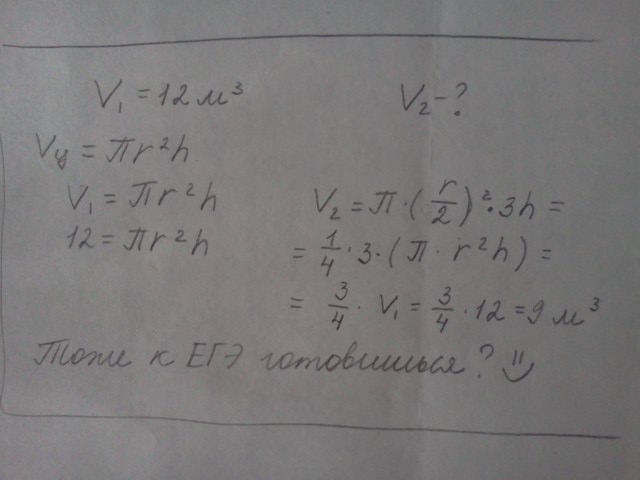 V₁ = 12 м³
V₂ - ?
Vц = πr²h
V₁ = πr²h
12 = πr²h
V₂ = π·(r/2)²·3h =
= 1/4·3·(π·r²h) =
= 3/4·V₁ = 3/4·12 = 9 м³
Тоже к ЕГЭ готовишься? =)